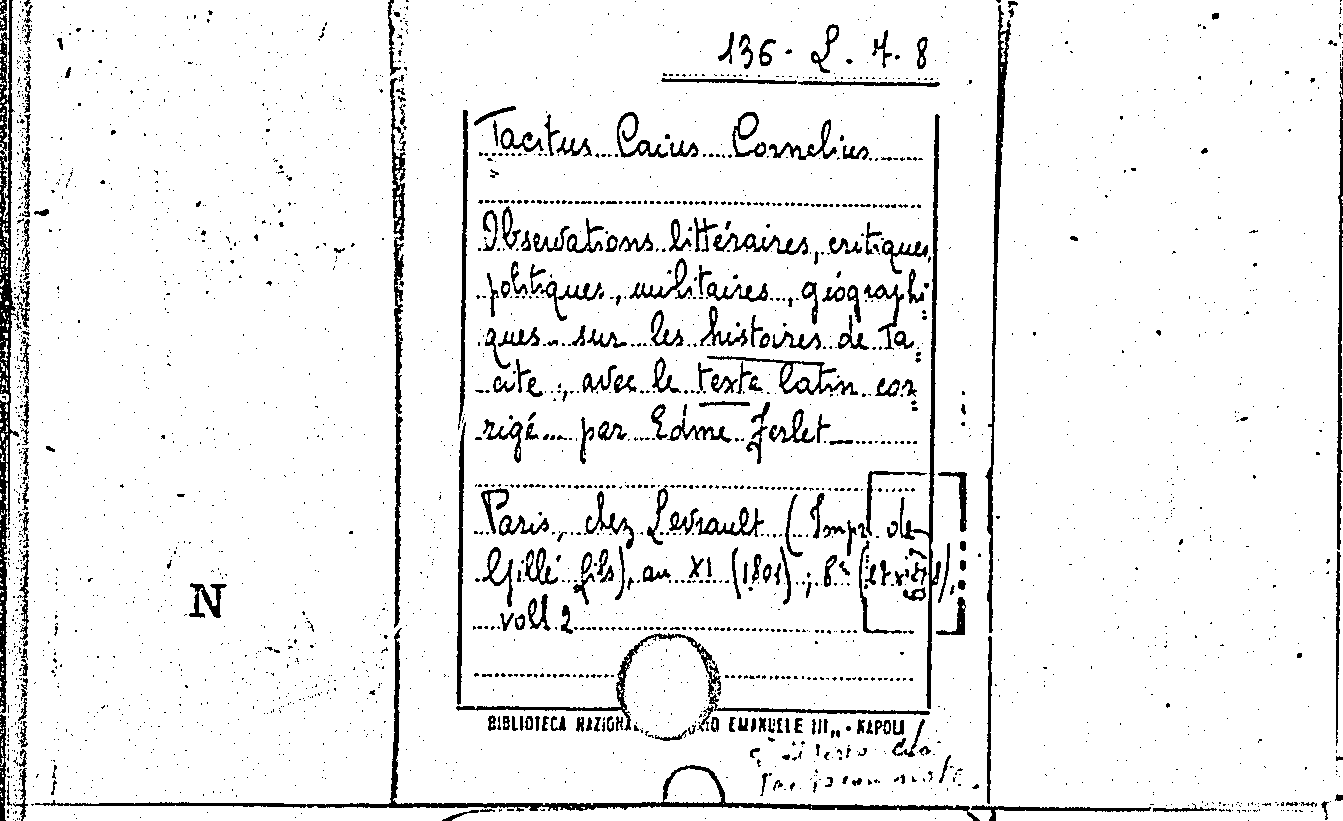 136 - L. 7. 8
Tacitus Caius Cornelius
Observations littéraires, critiques,
politiques, militaires, géographi=
ques sur les histoires de Ta=
cite, avec le texte latin cor=
rigé... par Edme Ferlet
Paris, chez Levrault (Impr de
Gillé fils), an XI (1801); 8°
voll 2
N
BIBLIOTECA NAZIONA IO EMANUELE III„ - NAPOLI